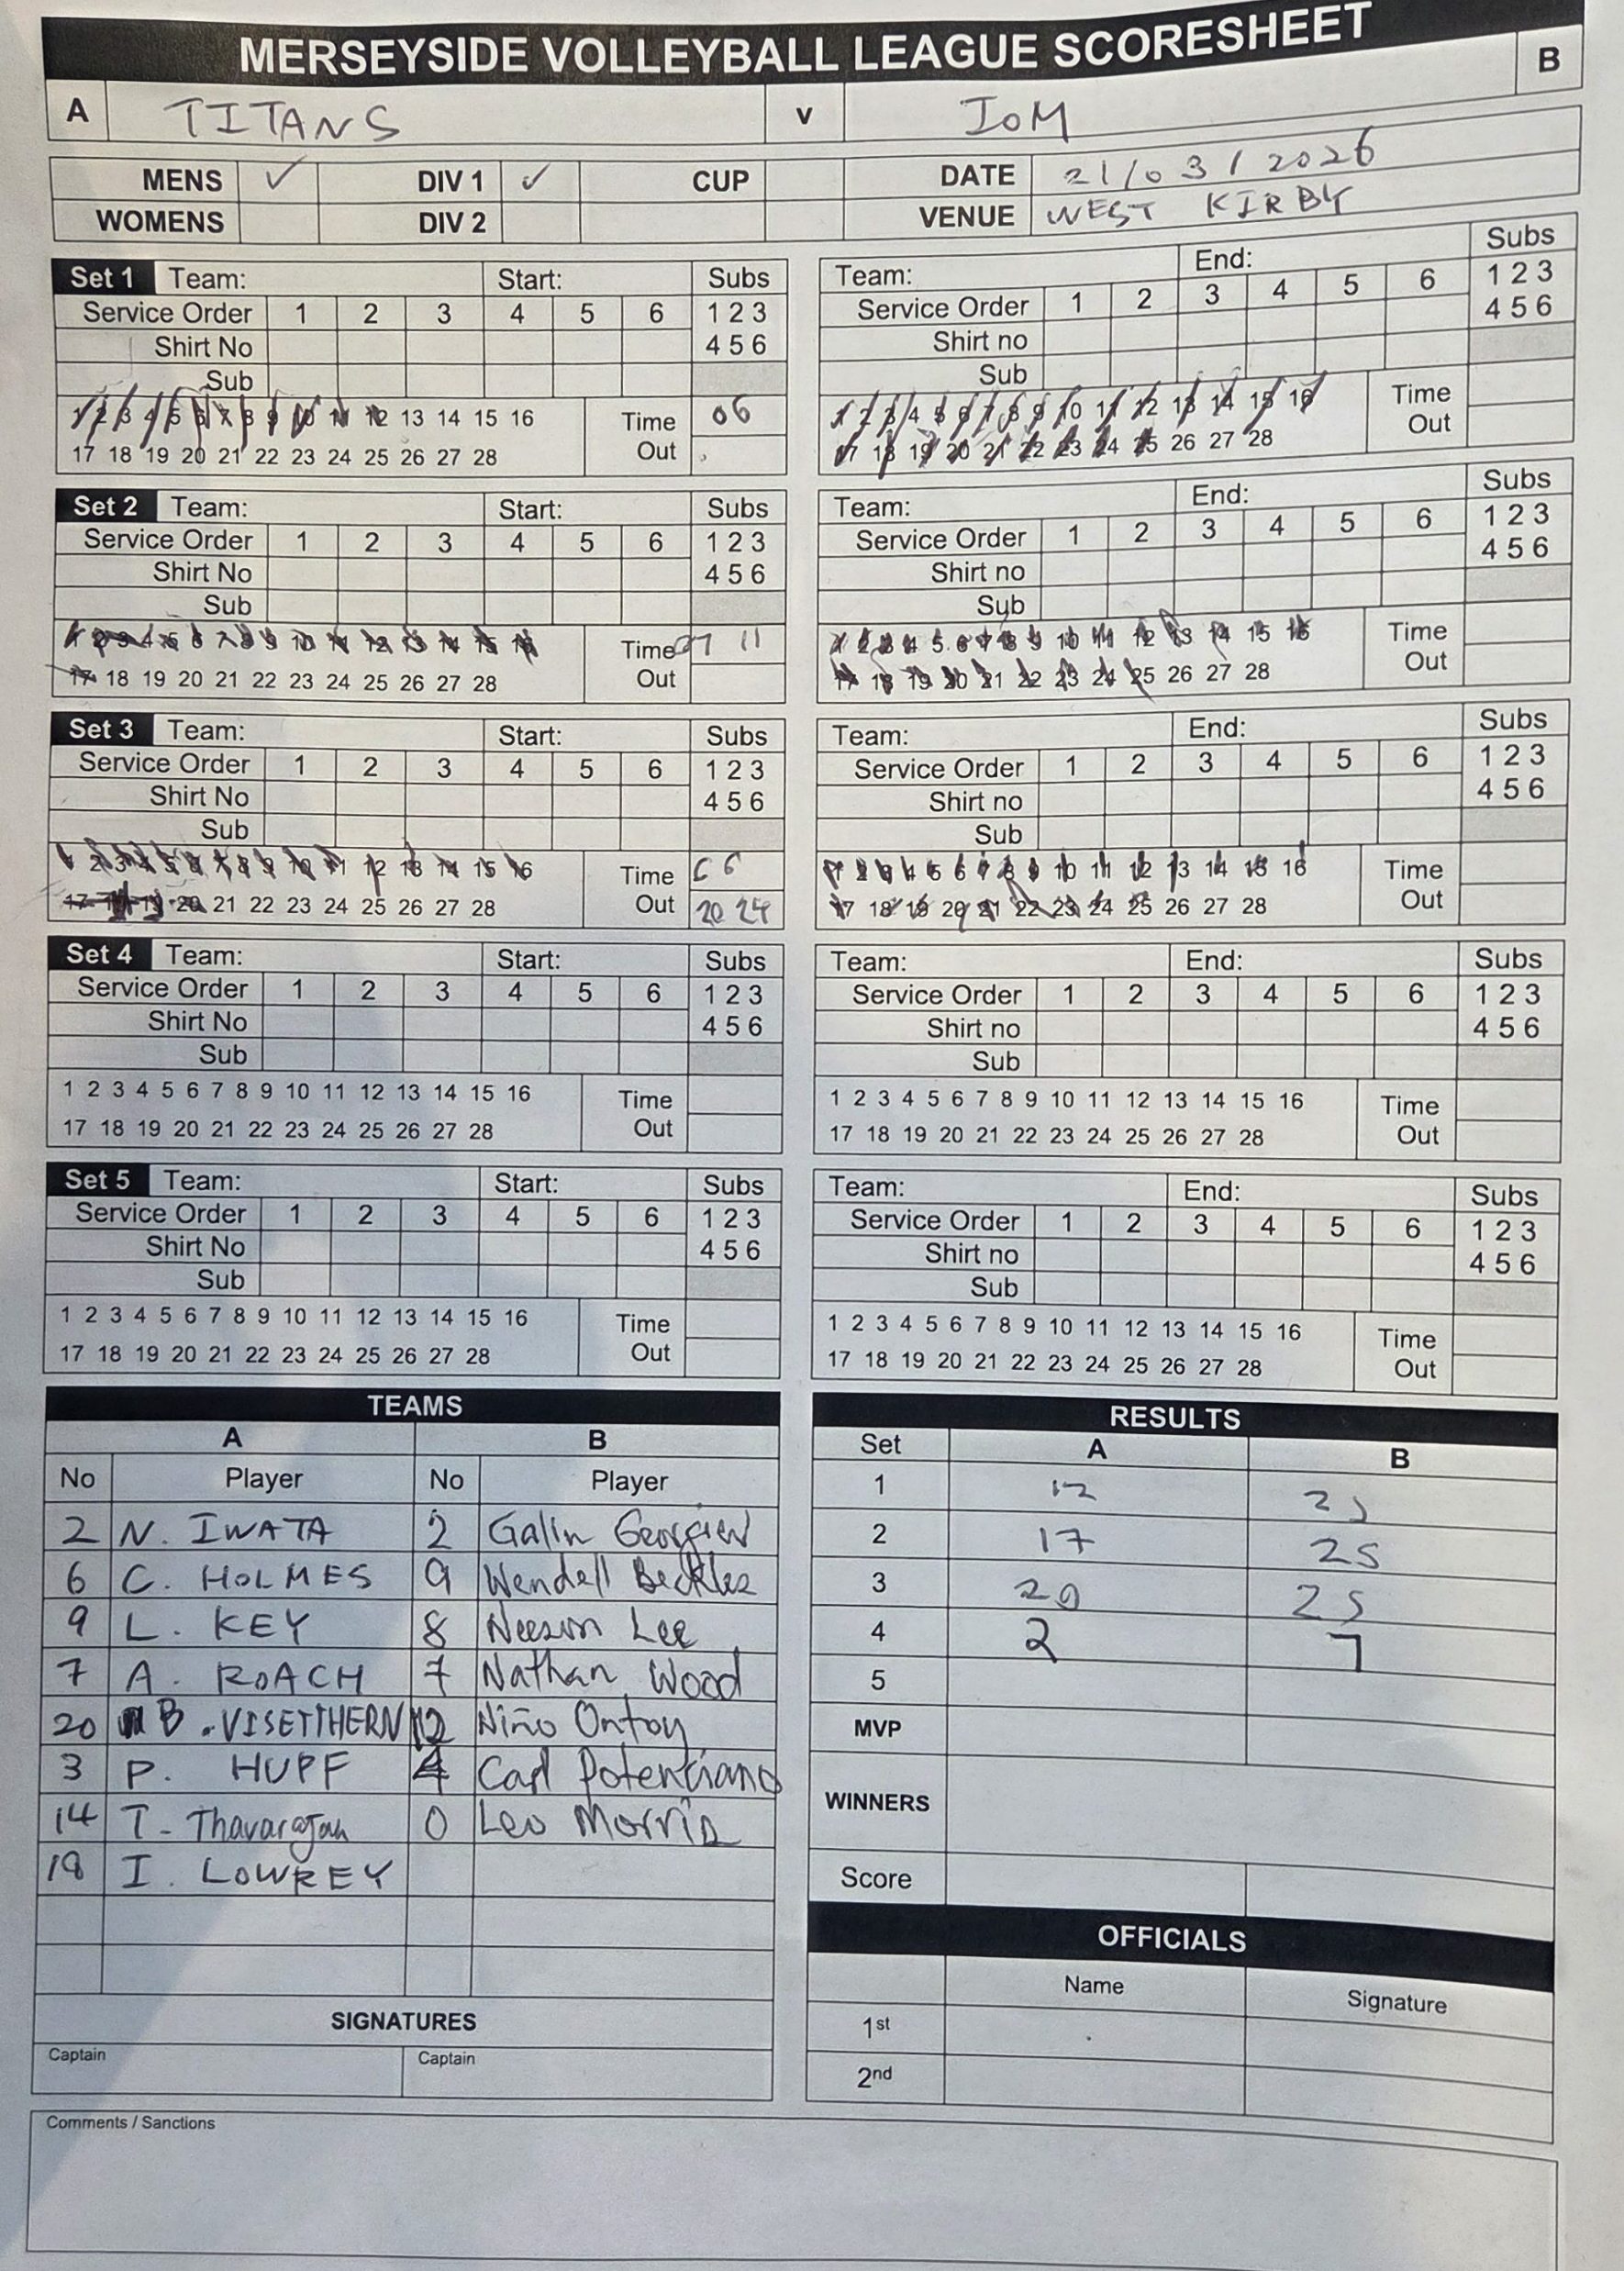 MERSEYSIDE VOLLEYBALL LEAGUE SCORESHEET
A TITANS v IOM B
MENS ✓ DIV 1 ✓ CUP DATE 21/03/2026
WOMENS DIV 2 VENUE WEST KIRBY
Set 1 Team: Start: Subs
Service Order 1 2 3 4 5 6 1 2 3
Shirt No 4 5 6
Sub
1 2 3 4 5 6 7 8 9 10 11 12 13 14 15 16 Time 06
17 18 19 20 21 22 23 24 25 26 27 28 Out
Team: End: Subs
Service Order 1 2 3 4 5 6 1 2 3
Shirt no 4 5 6
Sub
1 2 3 4 5 6 7 8 9 10 11 12 13 14 15 16 Time
17 18 19 20 21 22 23 24 25 26 27 28 Out
Set 2 Team: Start: Subs
Service Order 1 2 3 4 5 6 1 2 3
Shirt No 4 5 6
Sub
1 2 3 4 5 6 7 8 9 10 11 12 13 14 15 16 Time 11
17 18 19 20 21 22 23 24 25 26 27 28 Out
Team: End: Subs
Service Order 1 2 3 4 5 6 1 2 3
Shirt no 4 5 6
Sub
1 2 3 4 5 6 7 8 9 10 11 12 13 14 15 16 Time
17 18 19 20 21 22 23 24 25 26 27 28 Out
Set 3 Team: Start: Subs
Service Order 1 2 3 4 5 6 1 2 3
Shirt No 4 5 6
Sub
1 2 3 4 5 6 7 8 9 10 11 12 13 14 15 16 Time
17 18 19 20 21 22 23 24 25 26 27 28 Out 20 24
Team: End: Subs
Service Order 1 2 3 4 5 6 1 2 3
Shirt no 4 5 6
Sub
1 2 3 4 5 6 7 8 9 10 11 12 13 14 15 16 Time
17 18 19 20 21 22 23 24 25 26 27 28 Out
Set 4 Team: Start: Subs
Service Order 1 2 3 4 5 6 1 2 3
Shirt No 4 5 6
Sub
1 2 3 4 5 6 7 8 9 10 11 12 13 14 15 16 Time
17 18 19 20 21 22 23 24 25 26 27 28 Out
Team: End: Subs
Service Order 1 2 3 4 5 6 1 2 3
Shirt no 4 5 6
Sub
1 2 3 4 5 6 7 8 9 10 11 12 13 14 15 16 Time
17 18 19 20 21 22 23 24 25 26 27 28 Out
Set 5 Team: Start: Subs
Service Order 1 2 3 4 5 6 1 2 3
Shirt No 4 5 6
Sub
1 2 3 4 5 6 7 8 9 10 11 12 13 14 15 16 Time
17 18 19 20 21 22 23 24 25 26 27 28 Out
Team: End: Subs
Service Order 1 2 3 4 5 6 1 2 3
Shirt no 4 5 6
Sub
1 2 3 4 5 6 7 8 9 10 11 12 13 14 15 16 Time
17 18 19 20 21 22 23 24 25 26 27 28 Out
TEAMS
A B
No Player No Player
2 N. IWATA 2 Galin Georgiev
6 C. HOLMES 9 Wendell Beckles
9 L. KEY 8 Neeson Lee
7 A. ROACH 7 Nathan Wood
20 B. VISETTHERN 12 Niño Ontoy
3 P. HUPF 4 Carl Potenciano
14 T. Thavarajah 0 Leo Morris
18 I. LOWREY
SIGNATURES
Captain Captain
RESULTS
Set A B
1 12 25
2 17 25
3 20 25
4 2 7
5
MVP
WINNERS
Score
OFFICIALS
Name Signature
1st
2nd
Comments / Sanctions